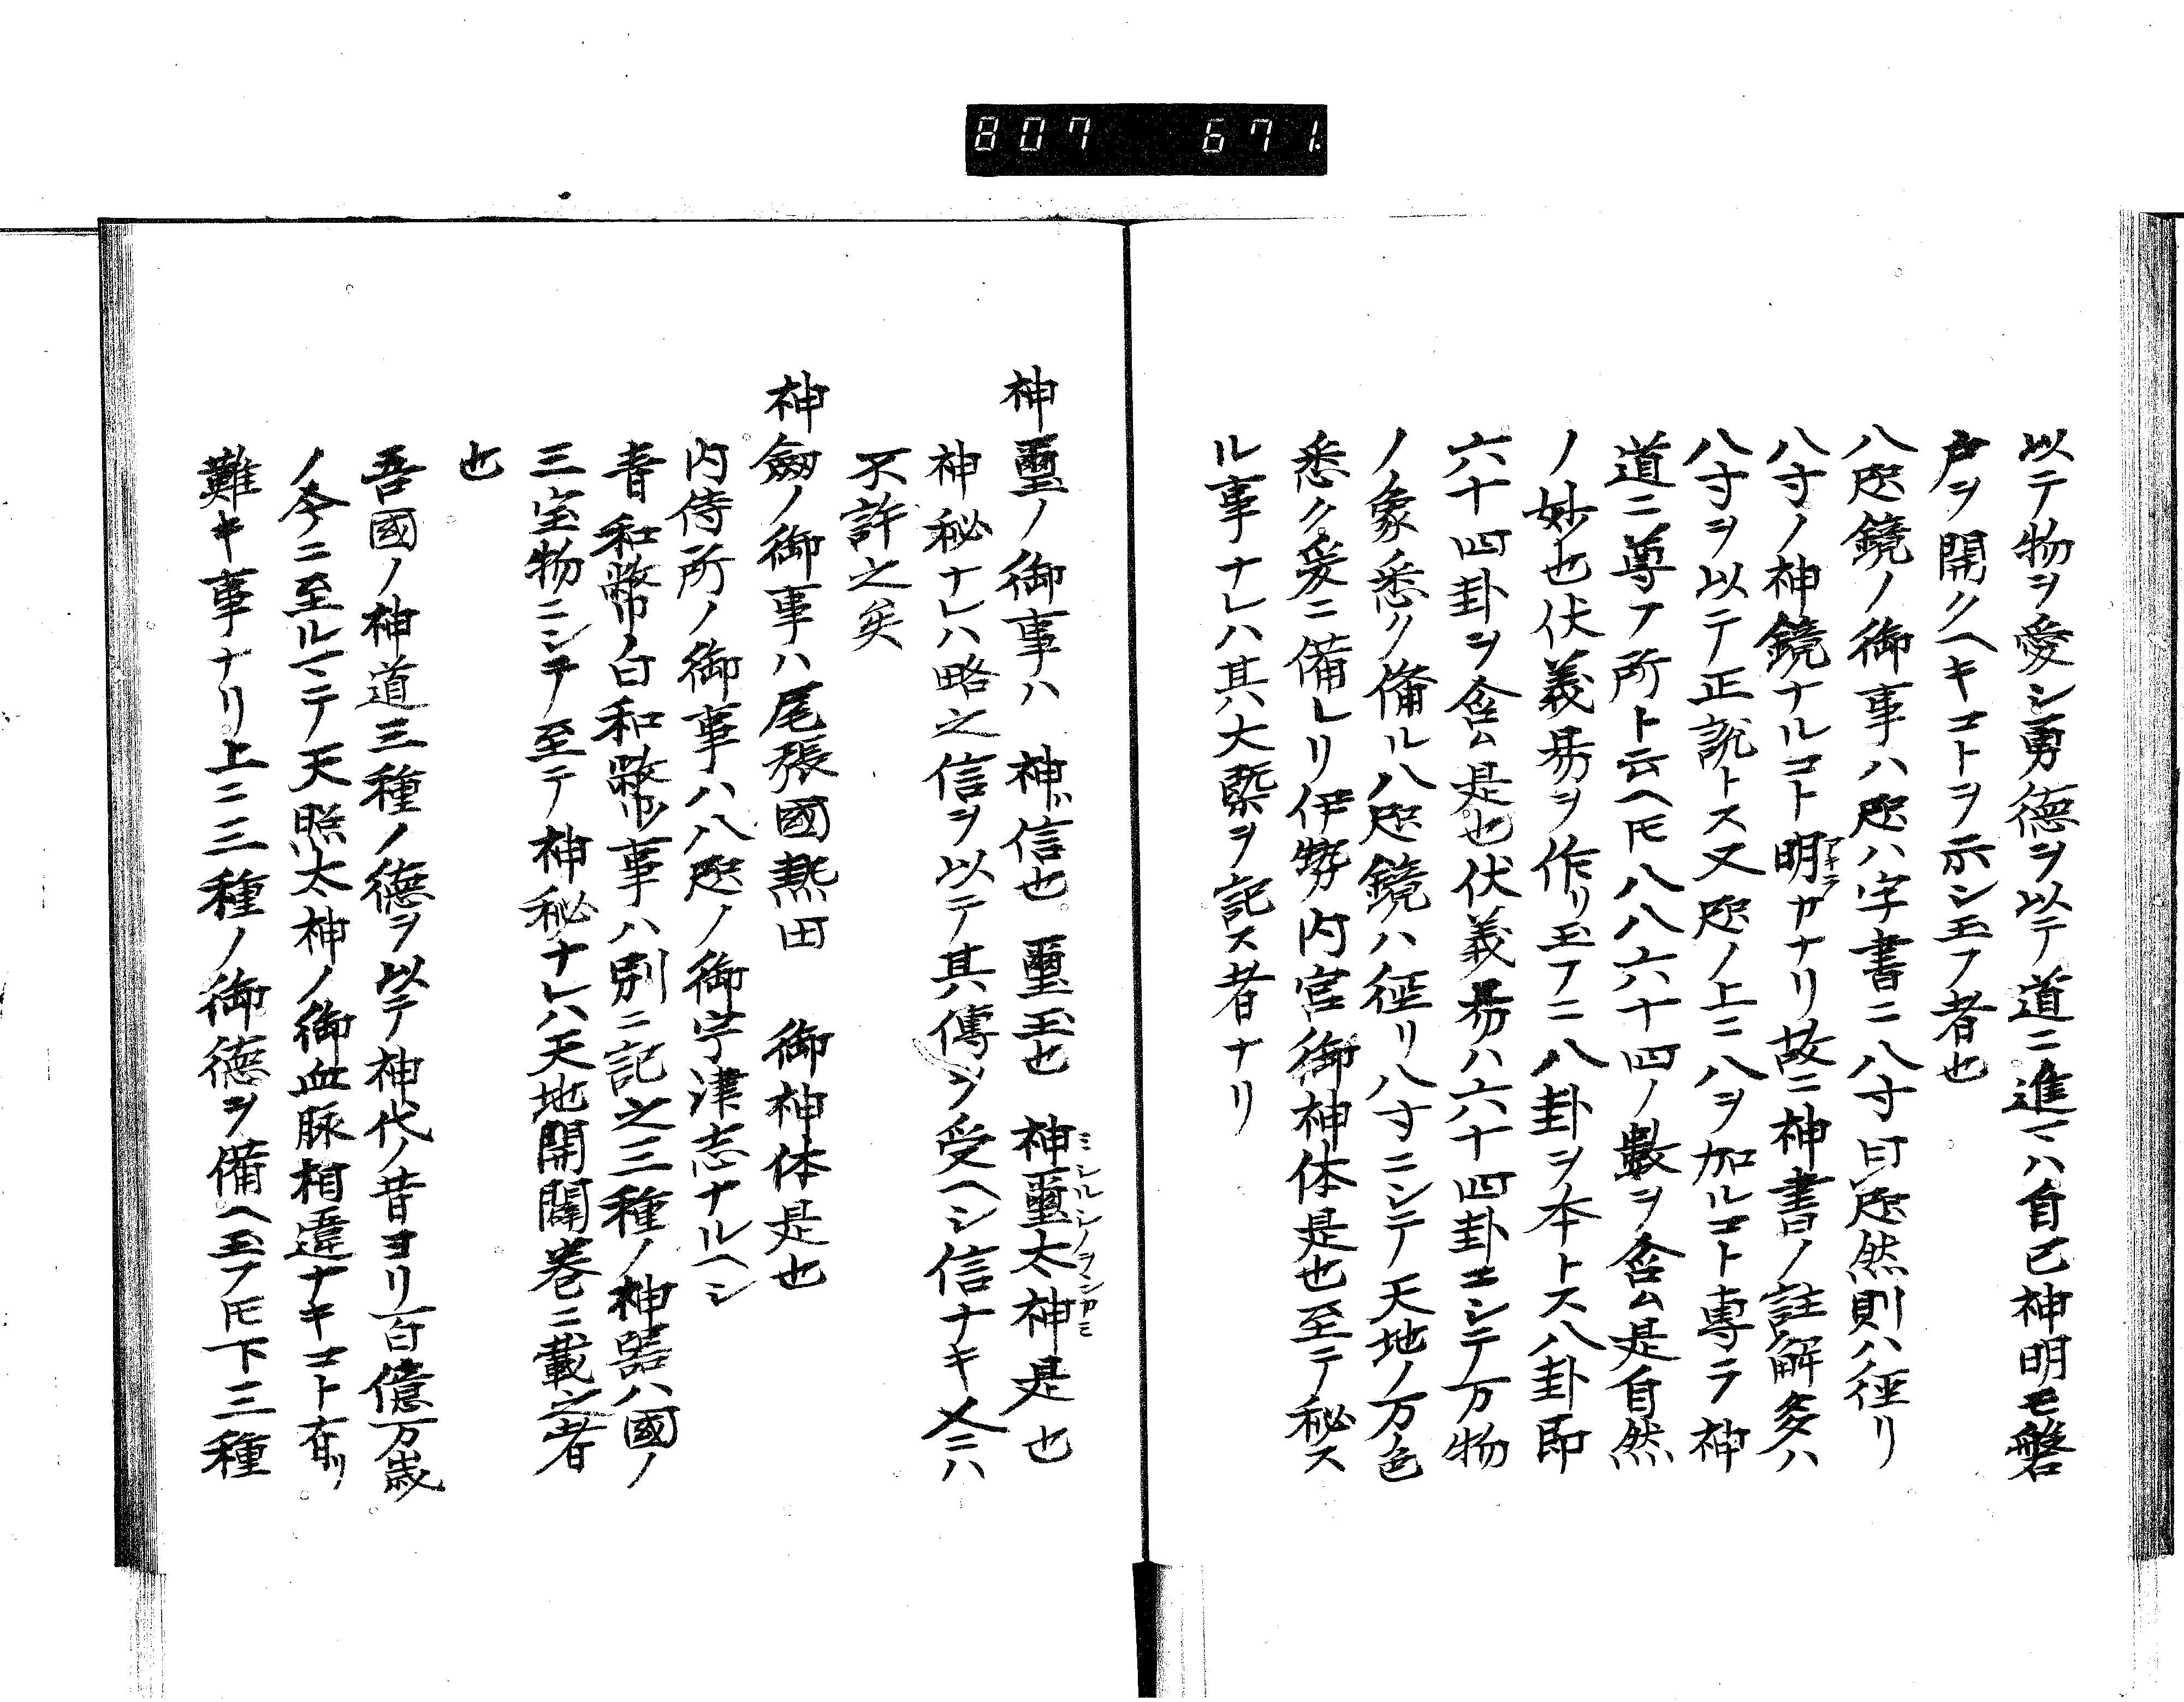 807 671.
以テ物ヲ愛シ勇徳ヲ以テ道ニ進マハ自己神明モ磐
戸ヲ開クヘキコトヲ示シ玉フ者也
八咫鏡ノ御事ハ咫ハ字書ニ八寸曰咫然則ハ径リ
八寸ノ神鏡ナルコト明カナリ故ニ神書ノ註解多ハ
アキラ
八寸ヲ以テ正説トス又咫ノ上ニ八ヲ加ルコト専ラ神
道ニ尊フ所ト云ヘ𪜈八八六十四ノ數ヲ含ム是自然
ノ妙也伏義易ヲ作リ玉フニ八卦ヲ本トス八卦即
六十四卦ヲ含ム是也伏義易ハ六十四卦ニシテ万物
ノ象悉ク備ル八咫鏡ハ径リ八寸ニシテ天地ノ万色
悉ク爰ニ備レリ伊勢内宮御神体是也至テ秘ス
ル事ナレハ其大槩ヲ記ス者ナリ
神璽ノ御事ハ 神ハ信也 璽玉也 神璽太神是也
ミシルシノヲンカミ
神秘ナレハ略之信ヲ以テ其傳ヲ受ヘシ信ナキ人ニハ
不許之矣
神劔ノ御事ハ尾張國熱田 御神体是也
内侍所ノ御事ハ八咫ノ御宇津志ナルヘシ
青和幣ノ白和幣事ハ別ニ記之三種ノ神器ハ國ノ
三宝物ニシテ至テ神秘ナレハ天地開闢巻ニ載之者
也
吾國ノ神道三種ノ德ヲ以テ神代ノ昔ヨリ百億万歳
ノ今ニ至ルマテ天照太神ノ御血脉相違ナキコト有リ
難キ事ナリ上ニ三種ノ御徳ヲ備ヘ玉フ𪜈下三種